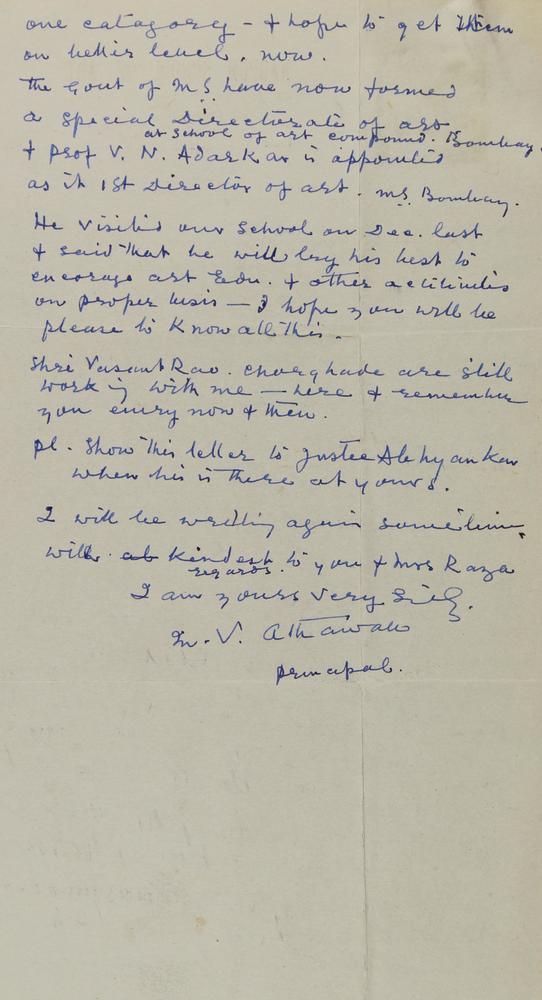 one catagorey - & hope to get them
on better level. now.
The Govt of M S have now formed
a special Directorate of art
at School of art compound. Bombay.
& Prof V. N. Adarkar is appointed
as it 1st Director of art. M.S. Bombay.
He visited our school on Dec. last
& said that he will try his best to
encorage art Edu. & other activities
on proper basis — I hope you will be
please to know all this.
Shri Vasant Rao. Chorghade are still
working with me — here & remember
you every now & then.
Pl. show this letter to Justee
when his is there at yours.
I will be writing again sometime,
with kindest to you & Mrs Raza
regards.
I am yours very
M. V. Athawale
Principal.